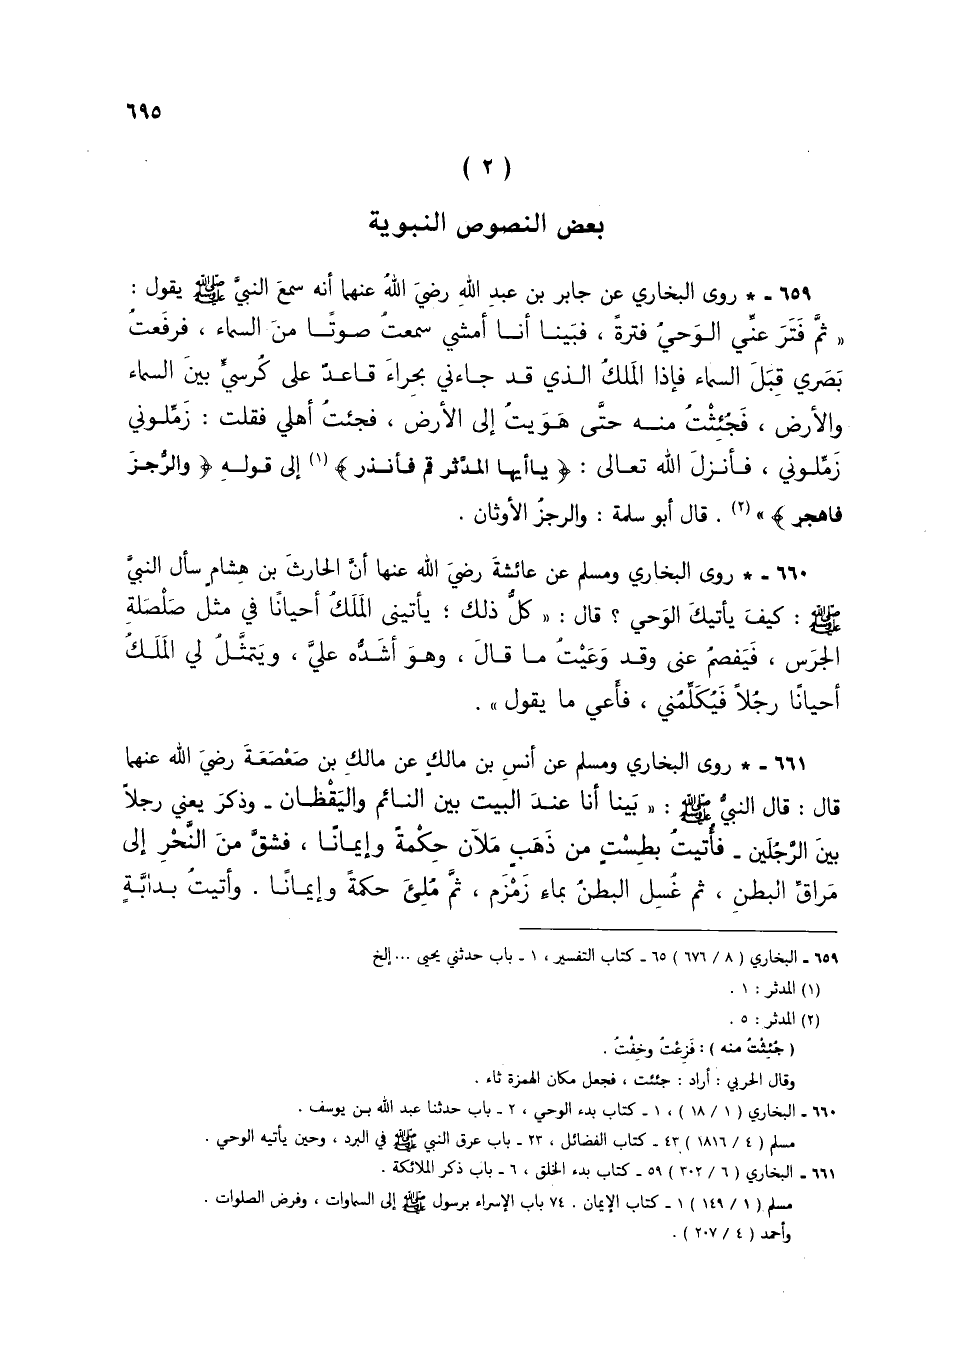 ٦٩٥
( ٢ )
بعض النصوص النبوية
٦٥٩ - * روى البخاري عن جابر بن عبدِ اللهِ رضيَ اللهُ عنهما أنه سمعَ النبيَّ ﷺ يقول :
« ثمَّ فَتَرَ عنِّي الوَحيُ فترةً ، فبَينا أنا أمشي سمعتُ صوتًا منَ السماء ، فرفَعتُ
بَصَري قِبَلَ السماء فإذا المَلكُ الذي قد جاءني بحِراءَ قاعدٌ على كُرسيٍّ بينَ السماء
والأرض ، فَجُئثْتُ منه حتَّى هَوَيتُ إلى الأرض ، فجئتُ أهلي فقلت : زَمِّلوني
زَمِّلوني ، فأنزلَ الله تعالى : ﴿ ياأيها المدّثر قم فأنذر ﴾ (١) إلى قوله ﴿ والرُّجزَ
فاهجر ﴾ » (٢) . قال أبو سلمة : والرجزُ الأوثان .
٦٦٠ - * روى البخاري ومسلم عن عائشةَ رضيَ الله عنها أنَّ الحارثَ بن هشامٍ سأل النبيَّ
ﷺ : كيفَ يأتيكَ الوَحي ؟ قال : « كلُّ ذلك ؛ يأتيني المَلَكُ أحيانًا في مثل صَلْصَلةِ
الجرَس ، فَيَفصمُ عنى وقد وَعَيْتُ ما قالَ ، وهوَ أشدُّه عليَّ ، ويَتمثَّلُ لي المَلَكُ
أحيانًا رجُلاً فَيُكَلِّمُني ، فأَعي ما يقول » .
٦٦١ - * روى البخاري ومسلم عن أنسِ بن مالكٍ عن مالكِ بن صَعْصَعَةَ رضيَ الله عنهما
قال : قال النبيُّ ﷺ : « بَينا أنا عندَ البيت بين النائم واليَقْظان - وذكرَ يعني رجلاً
بينَ الرَّجُلَين - فأُتيتُ بطِسْتٍ من ذَهَبٍ مَلآن حِكْمةً وإيمانًا ، فشقَّ منَ النَّحْرِ إلى
مَراقِّ البطنِ ، ثم غُسل البطنُ بماء زَمْزَم ، ثمَّ مُلئَ حكمةً وإيمانًا . وأتيتُ بدابَّةٍ
٦٥٩ - البخاري ( ٨ / ٦٧٦ ) ٦٥ - كتاب التفسير ، ١ - باب حدثني يحيى ... إلخ
(١) المدثر : ١ .
(٢) المدثر : ٥ .
( جُئِثْتُ منه ) : فَزِعْتُ وخِفْتُ .
وقال الحربي : أراد : جئثت ، فجعل مكان الهمزة ثاء .
٦٦٠ - البخاري ( ١ / ١٨ ) ، ١ - كتاب بدء الوحي ، ٢ - باب حدثنا عبد الله بن يوسف .
مسلم ( ٤ / ١٨١٦ ) ٤٣ - كتاب الفضائل ، ٢٣ - باب عرق النبي ﷺ في البرد ، وحين يأتيه الوحي .
٦٦١ - البخاري ( ٦ / ٣٠٢ ) ٥٩ - كتاب بدء الخلق ، ٦ - باب ذكر الملائكة .
مسلم ( ١ / ١٤٩ ) ١ - كتاب الإيمان . ٧٤ باب الإسراء برسول ﷺ إلى السماوات ، وفرض الصلوات .
وأحمد ( ٤ / ٢٠٧ ) .